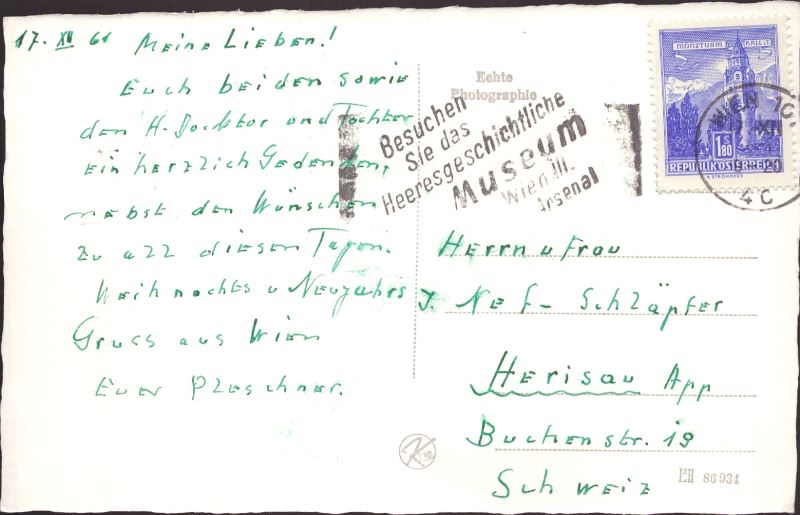 17. XII 61 Meine Lieben!
Euch beiden sowie
den H. Docktor und Tochter
ein herzlich Gedenken,
nebst den Wünschen
zu all diesen Tagen.
Weihnachts u Neujahrs
Gruss aus Wien
Euer Pleschner.
Echte
Photographie
Besuchen
Sie das
Heeresgeschichtliche
Museum
Wien III.
Arsenal
MÜNZTURM HALL i. T.
S 1.80
REPUBLIK ÖSTERREICH
WIEN 10
XII
20
4c
Herrn u Frau
J. Nef-Schläpfer
Herisau App
Buchenstr. 19
Schweiz
LH 86934